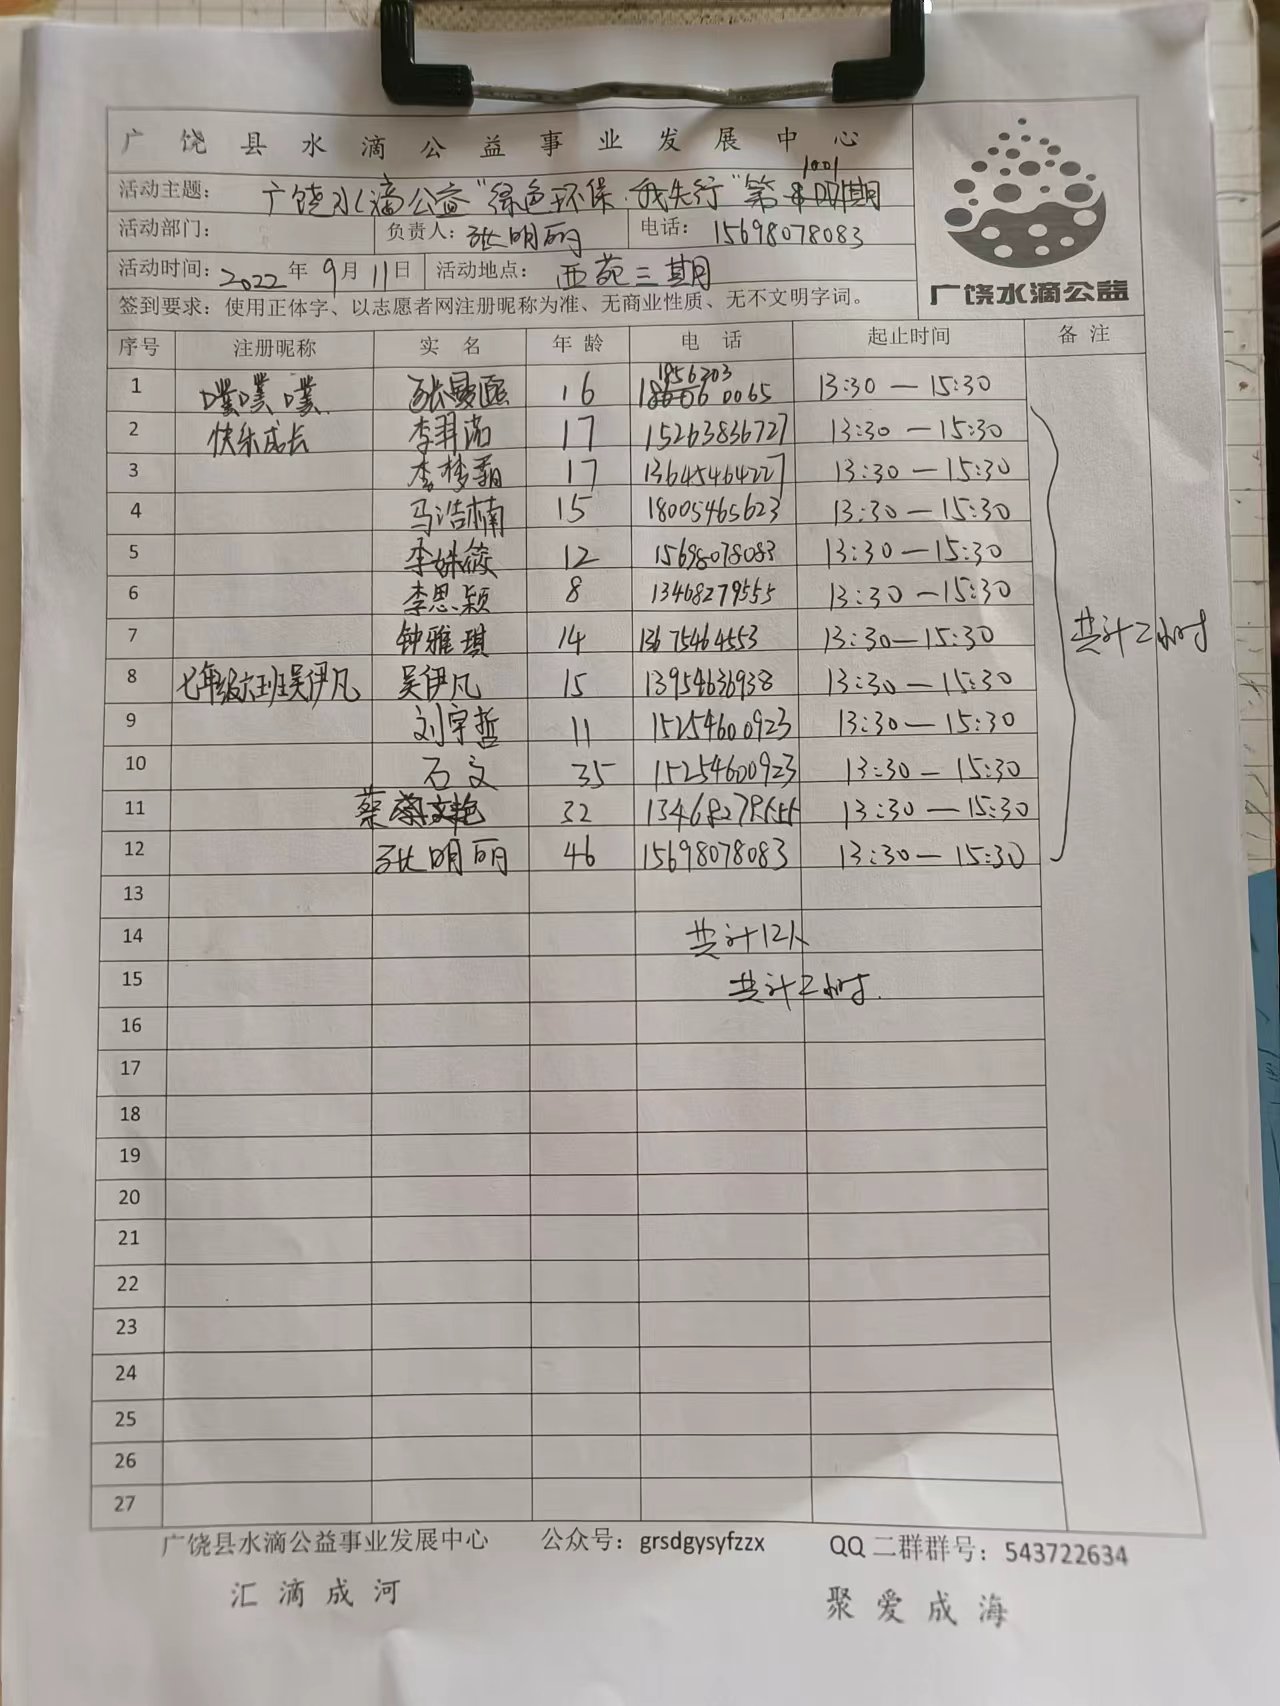 广饶县水滴公益事业发展中心
活动主题： 广饶水滴公益“绿色环保·我先行”第1001期
活动部门： 负责人：张明丽 电话：15698078083
活动时间：2022年9月11日 活动地点：西苑三期
签到要求：使用正体字、以志愿者网注册昵称为准、无商业性质、无不文明字词。
广饶水滴公益
序号 注册昵称 实名 年龄 电话 起止时间 备注
1 噗噗噗 张曼 16 13:30—15:30
2 快乐成长 李羿 17 15263836727 13:30—15:30
3 李梦霜 17 13645464227 13:30—15:30
4 马浩楠 15 18005465623 13:30—15:30
5 李姝筱 12 15698078083 13:30—15:30
6 李思颖 8 13468279555 13:30—15:30
7 钟雅琪 14 13675464553 13:30—15:30
共计2小时
8 七年级六班吴伊凡 吴伊凡 15 13954636938 13:30—15:30
9 刘宇哲 11 15254600923 13:30—15:30
10 石文 35 15254600923 13:30—15:30
11 蔡文艳 32 13:30—15:30
12 张明丽 46 15698078083 13:30—15:30
13
14 共计12人
15 共计2小时.
16
17
18
19
20
21
22
23
24
25
26
27
广饶县水滴公益事业发展中心 公众号：grsdgysyfzzx QQ二群群号：543722634
汇滴成河 聚爱成海